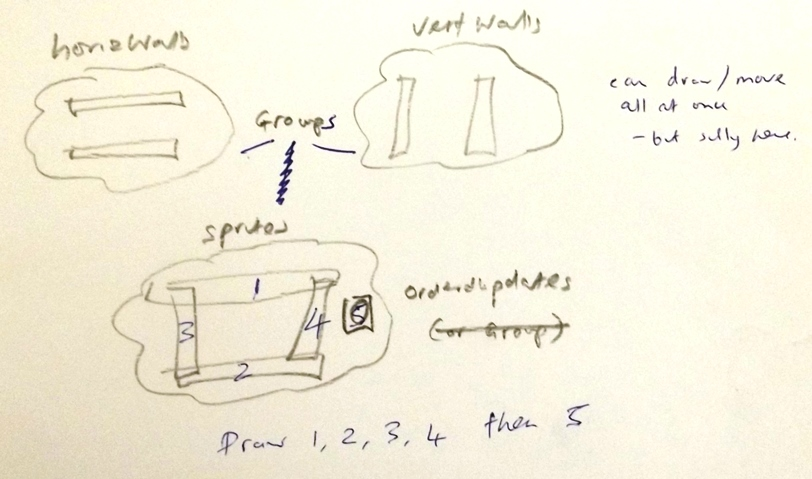 horizwalls
vertwalls
can draw/move
all at once
- but silly here.
Groups
sprites
1
3
4
5
2
orderedupdates
(or Group)
Draw 1, 2, 3, 4 then 5